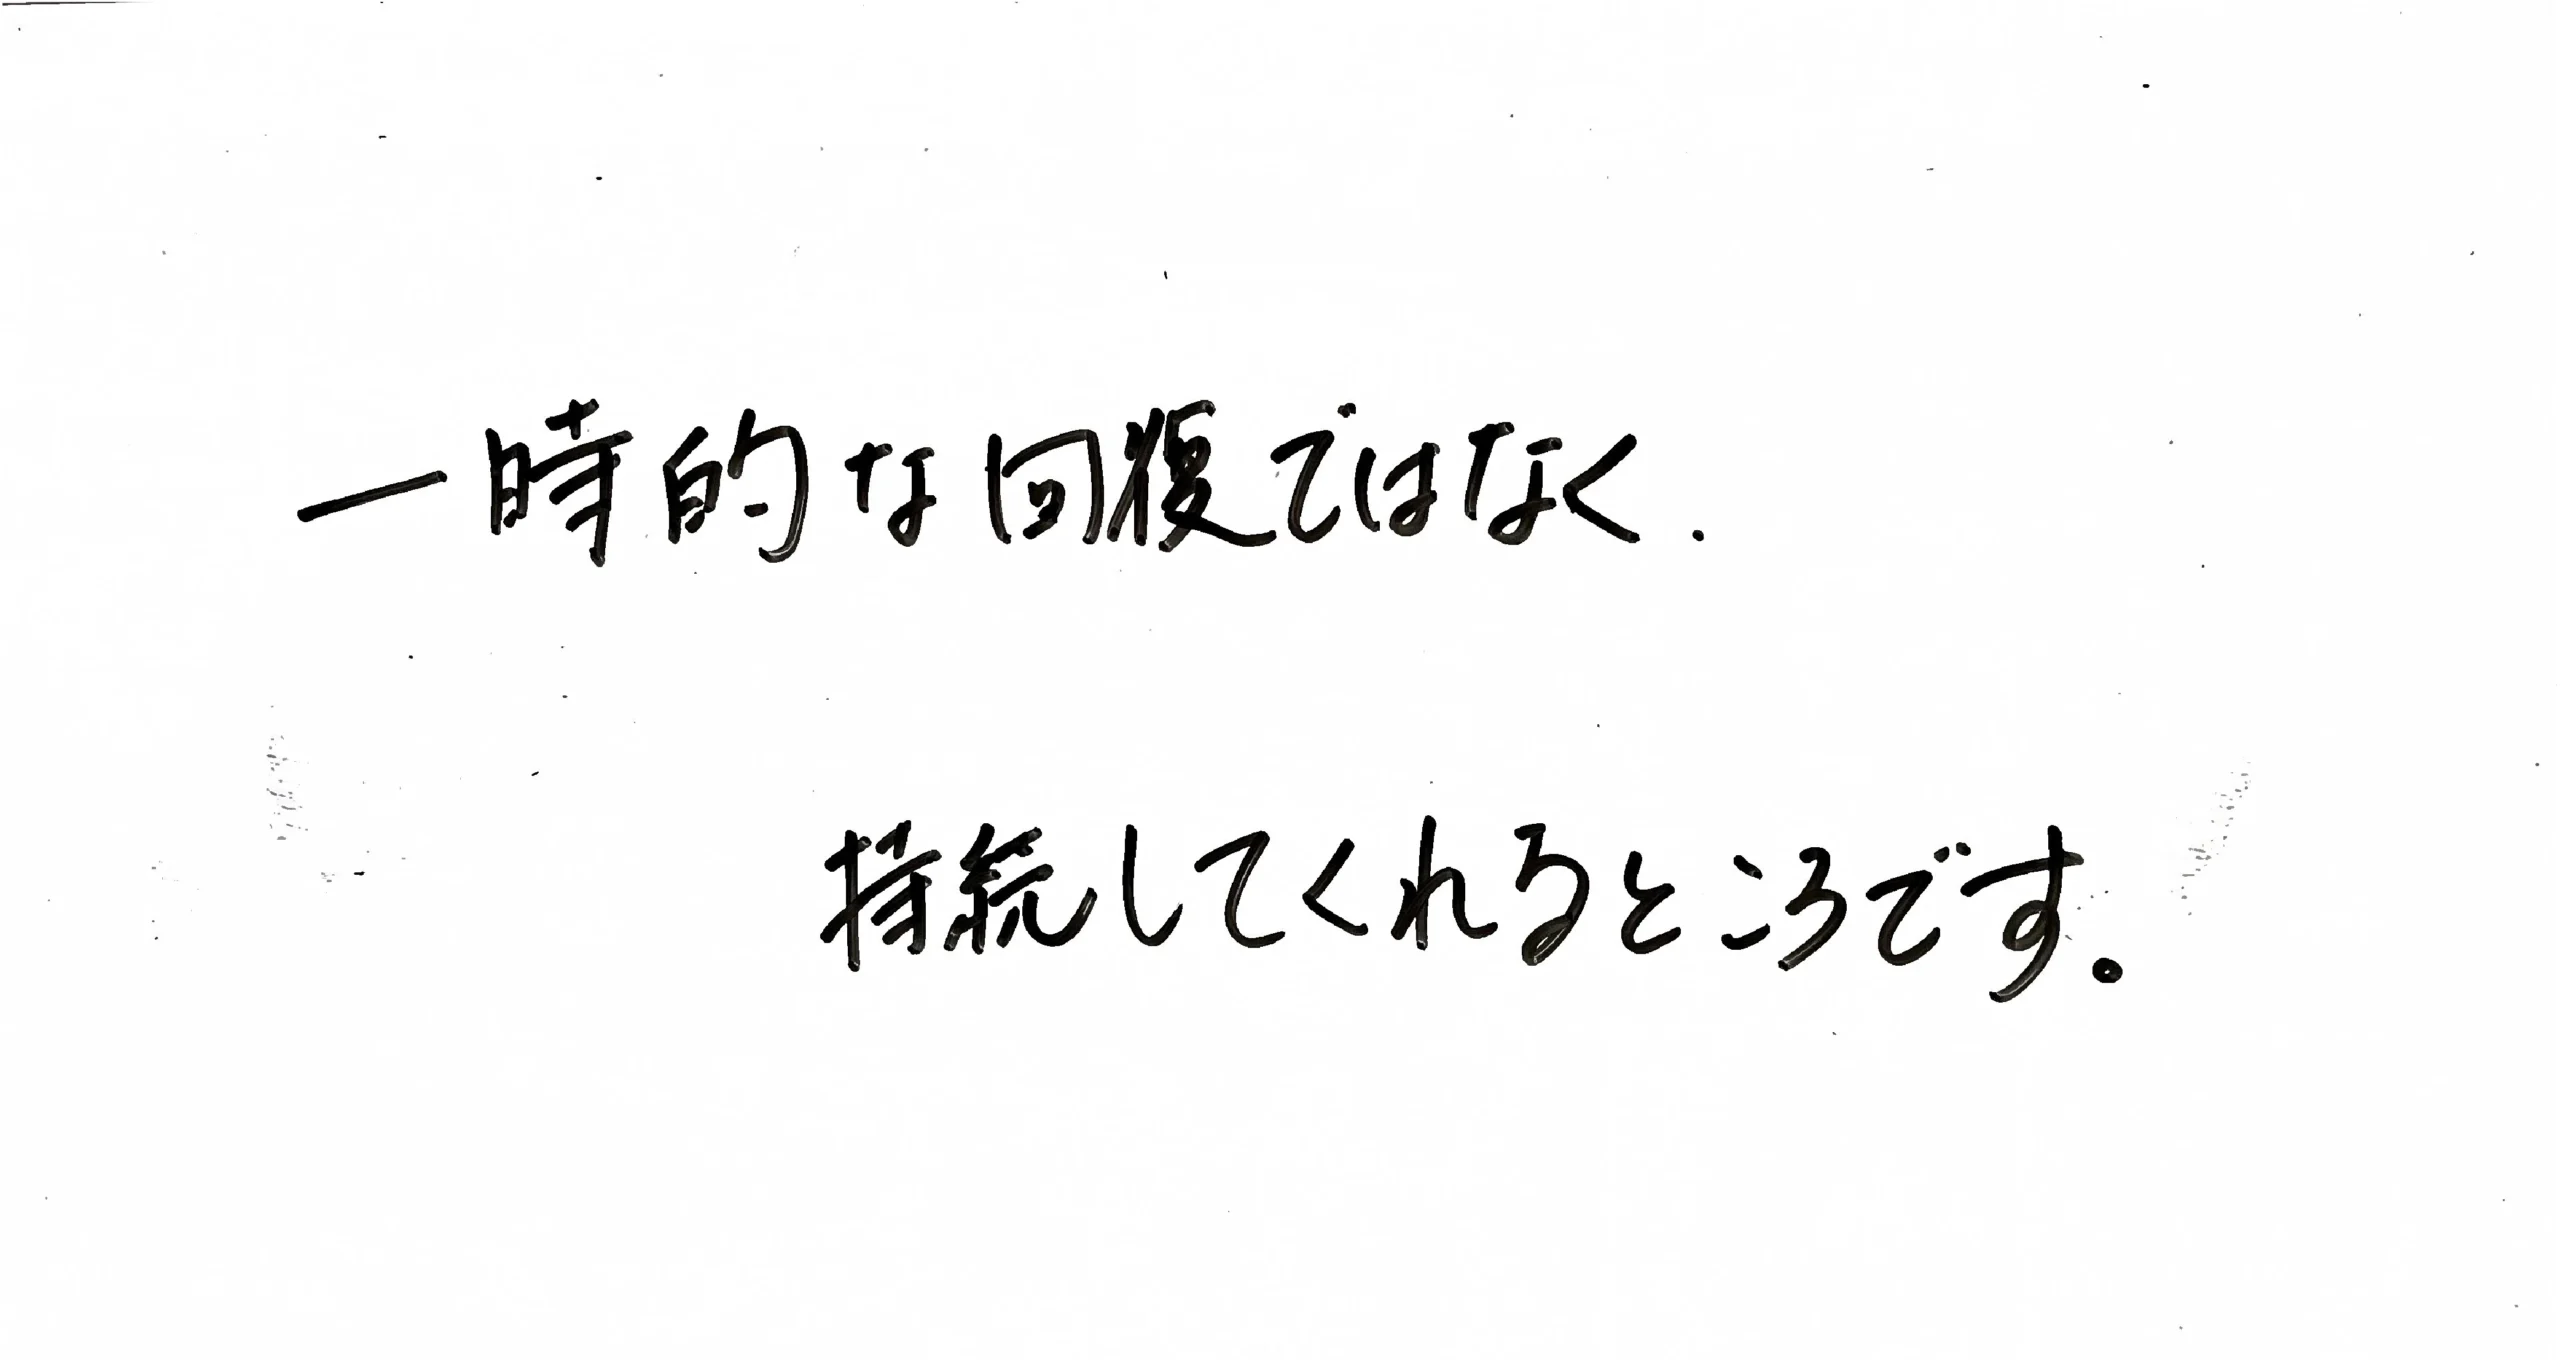 一時的な回復ではなく.
持続してくれるところです。